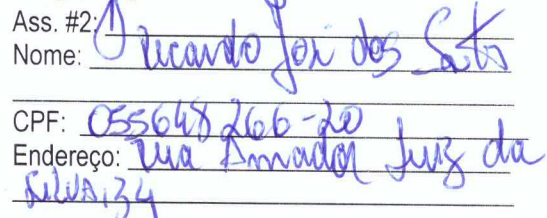 Ass. #2:
Nome: Ricardo José dos Santos
CPF: 055648266-20
Endereço: Rua Amador Luiz da
SILVA, 34